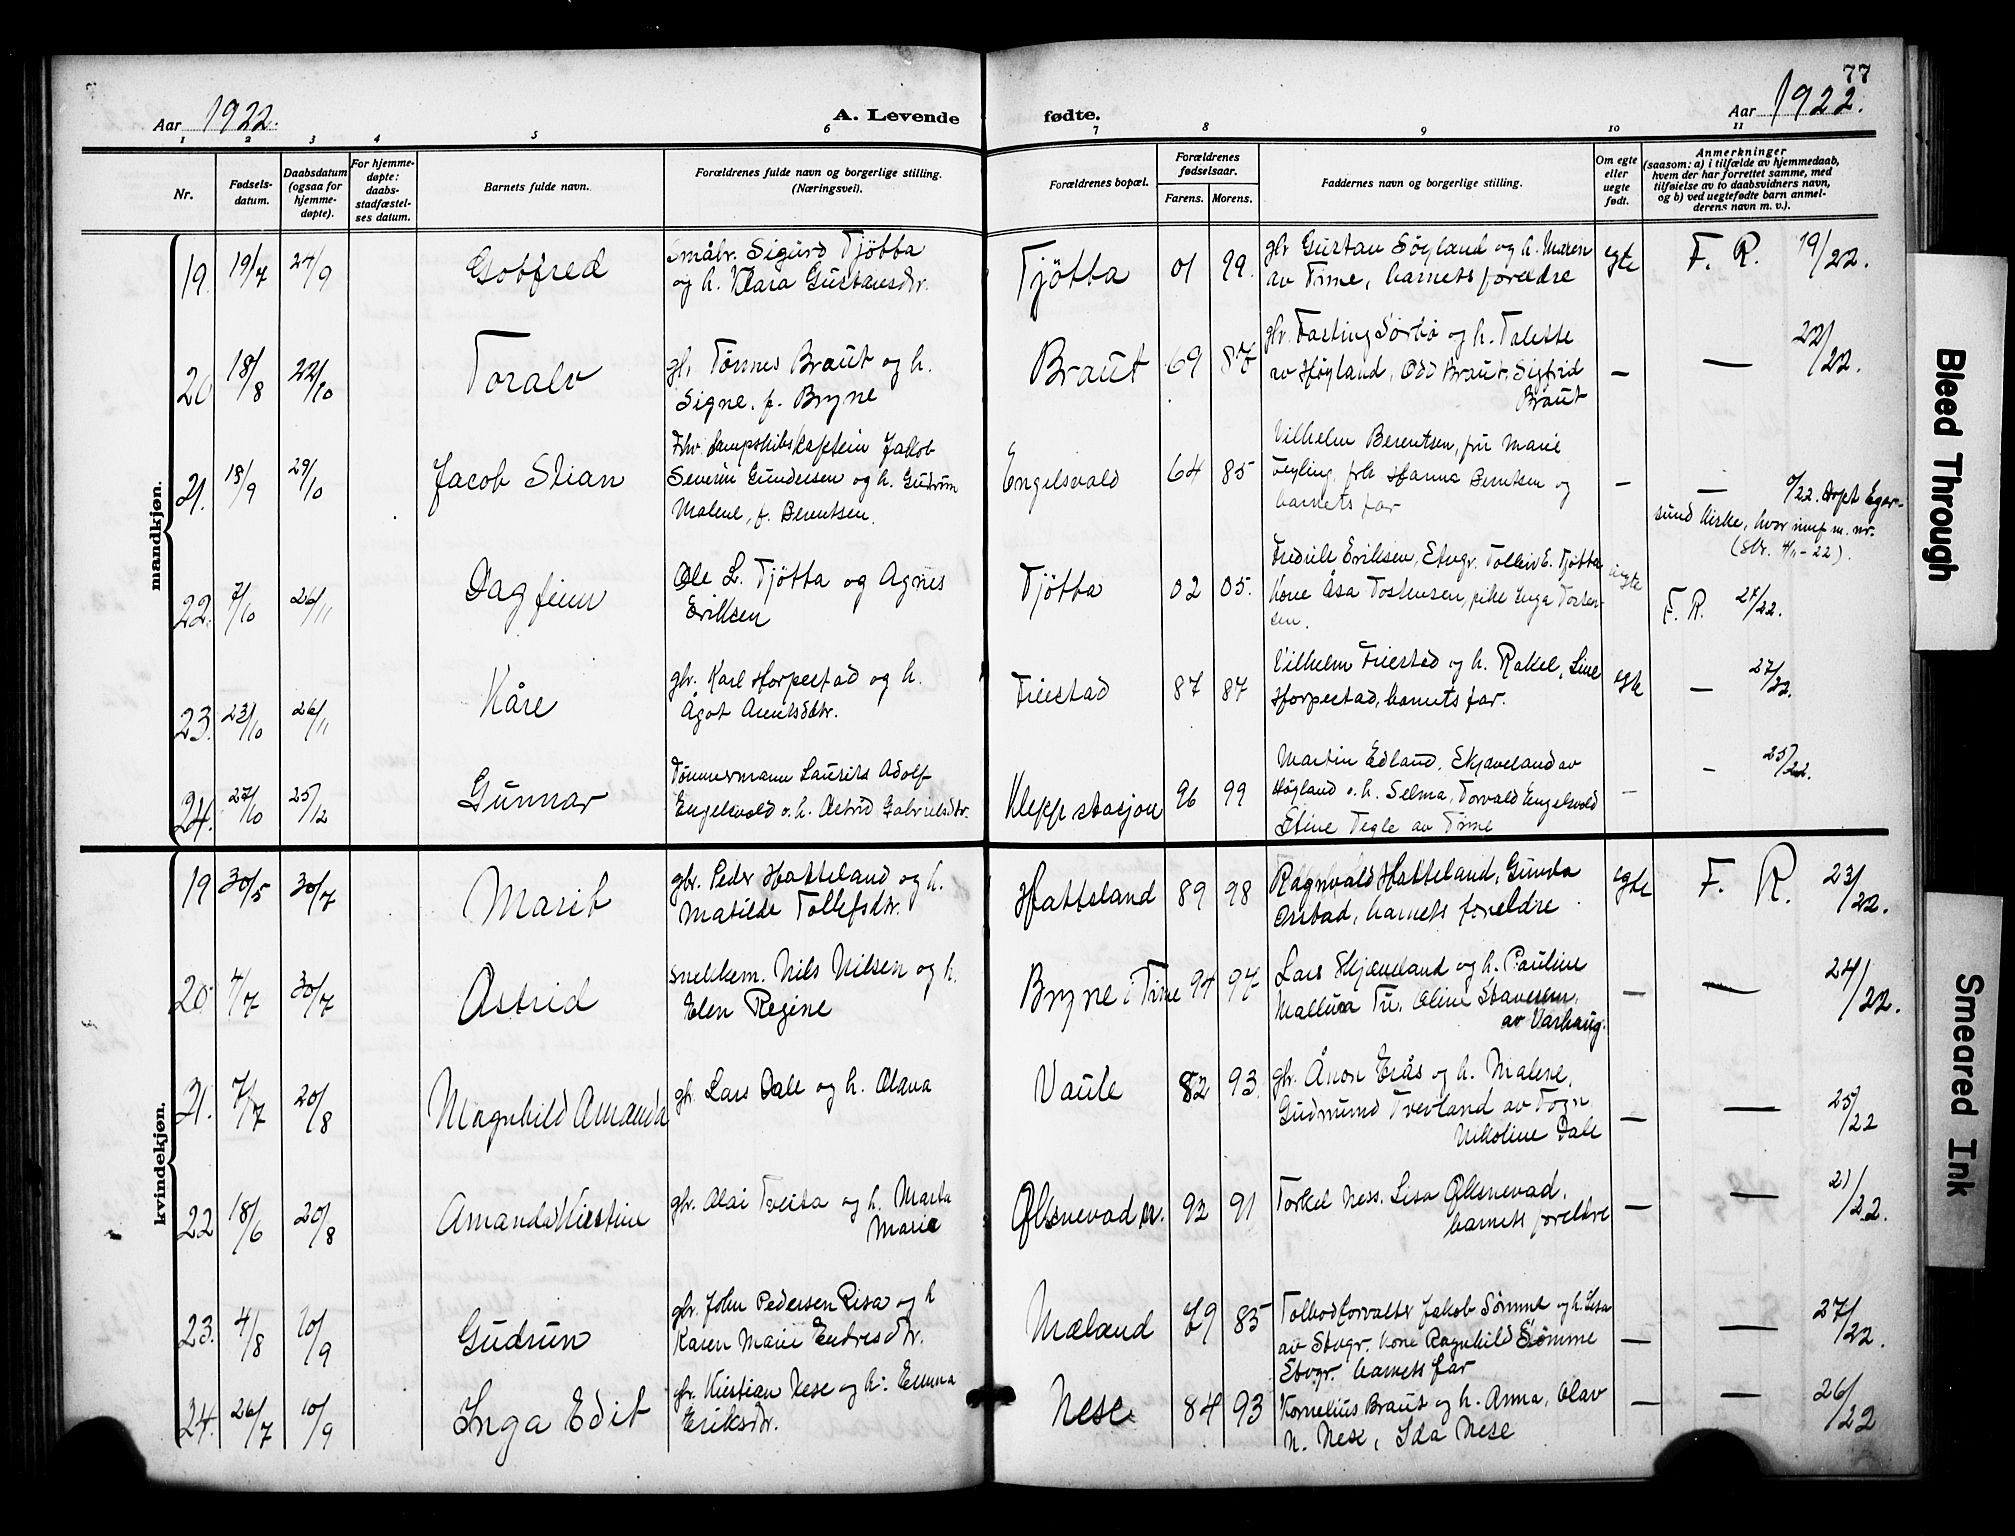 77
Aar 1922.
A. Levende fødte.
Aar 1922.
1 2 3 4 5 6 7 8 9 10 11
Nr.
Fødsels-
datum.
Daabsdatum
(ogsaa for
hjemme-
døpte).
For hjemme-
døpte:
daabs-
stadfæstel-
ses datum.
Barnets fulde navn.
Forældrenes fulde navn og borgerlige stilling.
(Næringsvei).
Forældrenes bopæl.
Forældrenes
fødselsaar.
Farens. Morens.
Faddernes navn og borgerlige stilling.
Om egte
eller
uegte
født.
Anmerkninger
(saasom: a) i tilfælde av hjemmedaab,
hvem der har forrettet samme, med
tilføielse av to daabsvidners navn,
og b) ved uegtefødte barn anmel-
derens navn m. v.).
mandkjøn.
19. 19/7 24/9 Gotfred
Småbr. Sigurd Tjøtta
og h. Klara Gustavsdtr.
Tjøtta 01 99.
gbr Gustav Søyland og h. Maren
av Time, barnets foreldre
egte F. R. 19/22.
20 18/8 22/10 Toralv
gbr Tønnes Braut og h.
Signe, f. Bryne
Braut 69
gbr. Fasting Sørbø og h. Talette
av Høyland, Odd Braut, Sigfrid
Braut
— — 22/22.
21. 18/9 29/10 Jacob Stian
Fhv. dampskibskaptein Jakob
Severin Gundersen og h. Gudrun
Malene, f. Berentsen.
Engelsvold 64 85
Vilhelm Berentsen, fru Marie
Feyling, frk Hanna Berentsen og
barnets far
— — 0/22. Døpt Eger-
sund kirke, hvor innf. m. nr.
(Skr. 4/11-22).
22. 7/10 26/11 Dagfinn
Ole L. Tjøtta og Agnes
Eriksen
Tjøtta 02 05.
Fredrik Eriksen, Stvgr. Tollev E. Tjøtta
Kone Åsa Tostensen, pike Inga Tosten-
sen.
uegte F. R. 27/22.
23. 23/10 26/11 Kåre
gbr. Karl Horpestad og h.
Ågot
Friestad 87 87
Vilhelm Friestad og h. Rakel, Line
Horpestad, barnets far.
egte — 27/22.
24. 27/10 25/12 Gunnar
Tømmermann Laurits Adolf
Engelsvold o. h. Astrid Gabrielsdtr.
Klepp stasjon 96 99
Martin Edland, E Kjæveland av
Høyland o. h. Selma, Torvald Engelsvold
Stine Tegle av Time
— — 25/22.
kvindekjøn.
19 30/5 30/7 Marit
gbr. Peder Hatteland og h.
Matilde Tollefsdtr.
Hatteland 89 98
Ragnvald Hatteland, Gunda
Orstad, barnets foreldre
egte F. R. 23/22.
20 4/7 30/7 Astrid
Snekkerm. Nils Nilsen og h.
Elen Regine
Bryne i Time 94 97
Lars Skjæveland og h. Pauline
Tu, Oline Stavesem,
av Varhaug.
— — 24/22.
21. 7/7 20/8 Magnhild Amanda
gbr. Lars Dale og h. Olava
Vaule 82 93.
gbr. Ånon Erås og h. Malene,
Gudmund Tveland av Togn,
Nikoline Dale
— — 25/22
22 18/6 20/8 Amanda Kirstine
gbr. Olai Tveita og h. Marta
Marie
Ølsnevad m. 92 91
Torkel Ness, Lisa Ølsnevad,
barnets foreldre
— — 21/22.
23. 4/8 10/9 Gudrun
gbr. John Pedersen Risa og h
Karen Marie Endresdtr.
Mæland 79 85
Tolbodforvalter Jakob Sømme og h. Lisa
av Stvgr. kone Ragnhild Sømme
Stvgr. barnets far
— — 27/22.
24. 26/7 10/9 Inga Edit
gbr. Kristian Nese og h. Emma
Eriksdtr.
Nese 84 93
Kornelius Braut og h. Anna, Olav
N. Nese, Ida Nese
— — 26/22
Bleed Through
Smeared Ink